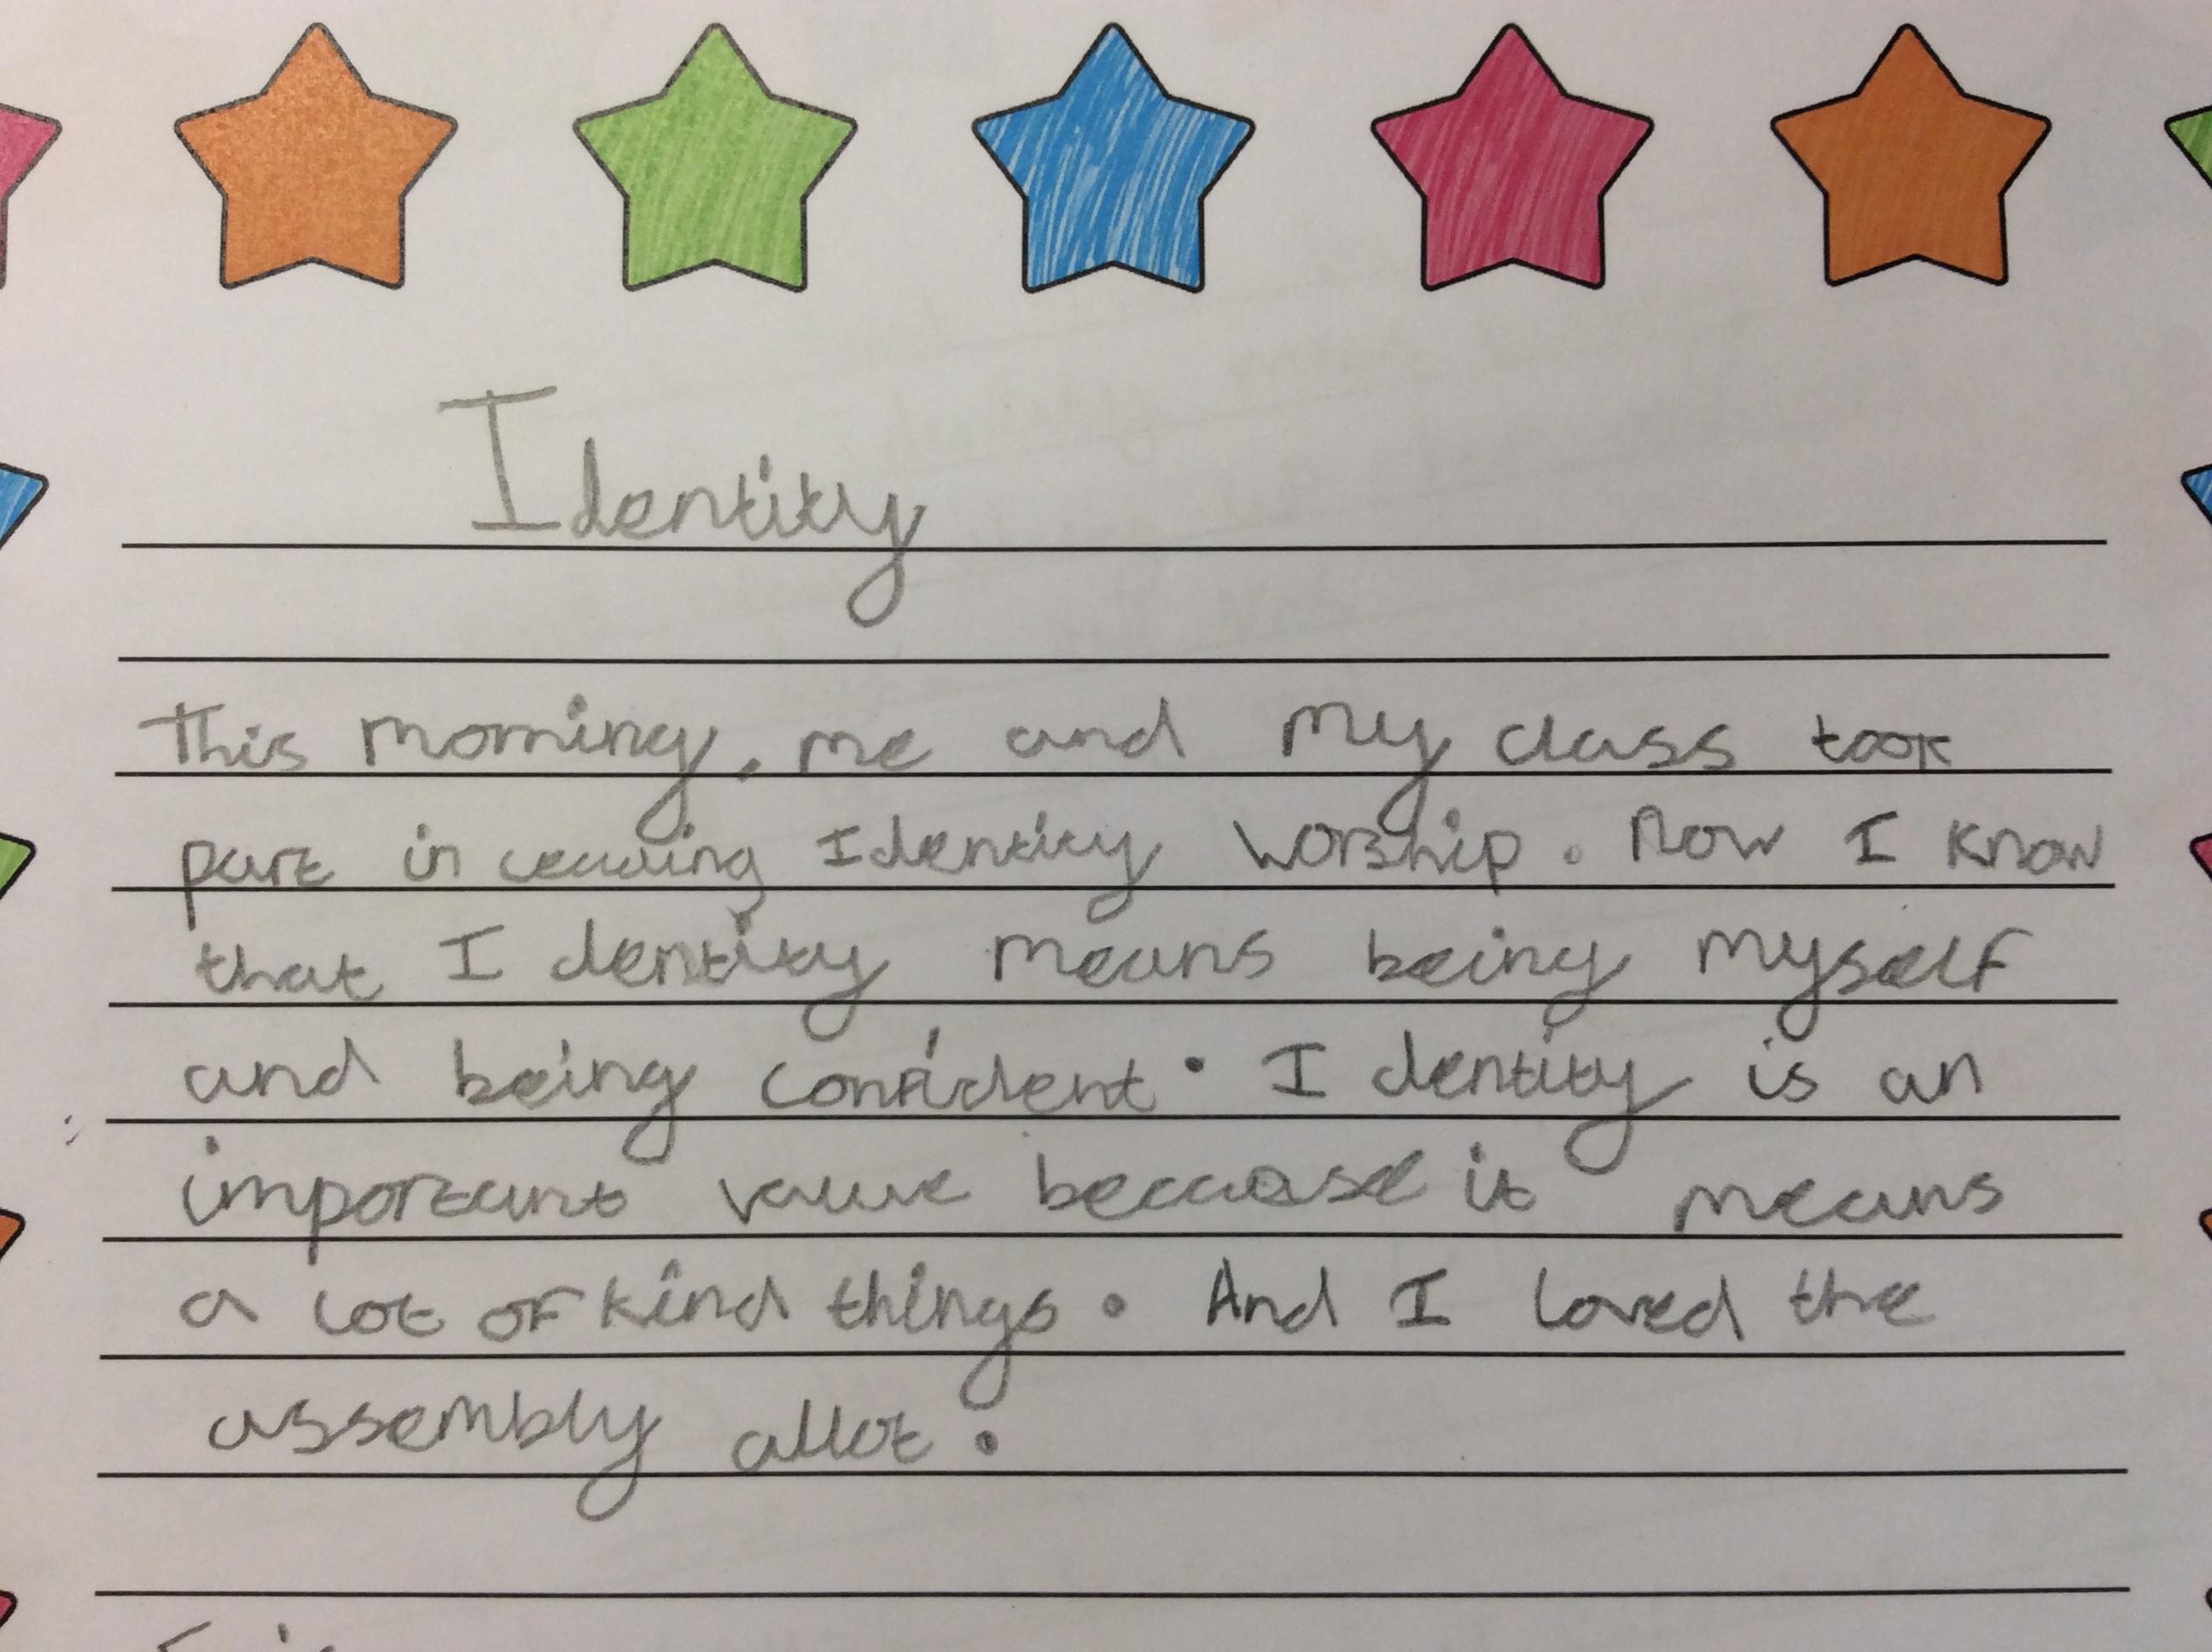 Identity
This morning, me and my class took
part in leading Identity Worship. Now I know
that Identity means being myself
and being confident. Identity is an
important value because it means
a lot of kind things. And I loved the
assembly allot.